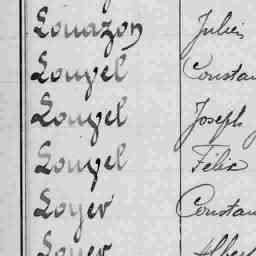 Louazon Julien
Louyel Constan
Louyel Joseph
Louyel Félix
Loyer Constan
Loyer Alber